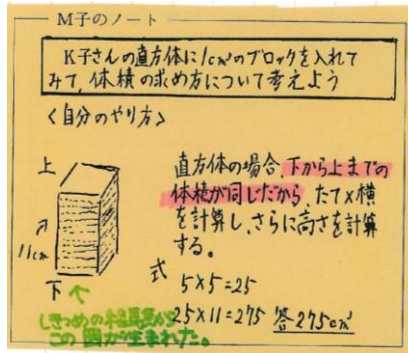 M子のノート
K子さんの直方体に1cm³のブロックを入れて
みて、体積の求め方について考えよう
<自分のやり方>
上
11cm
下
直方体の場合、下から上までの
体積が同じだから、たて×横
を計算し、さらに高さを計算
する。
式 5×5=25
25×11=275 答275cm³
しきつめの結果が
この図が生まれた。